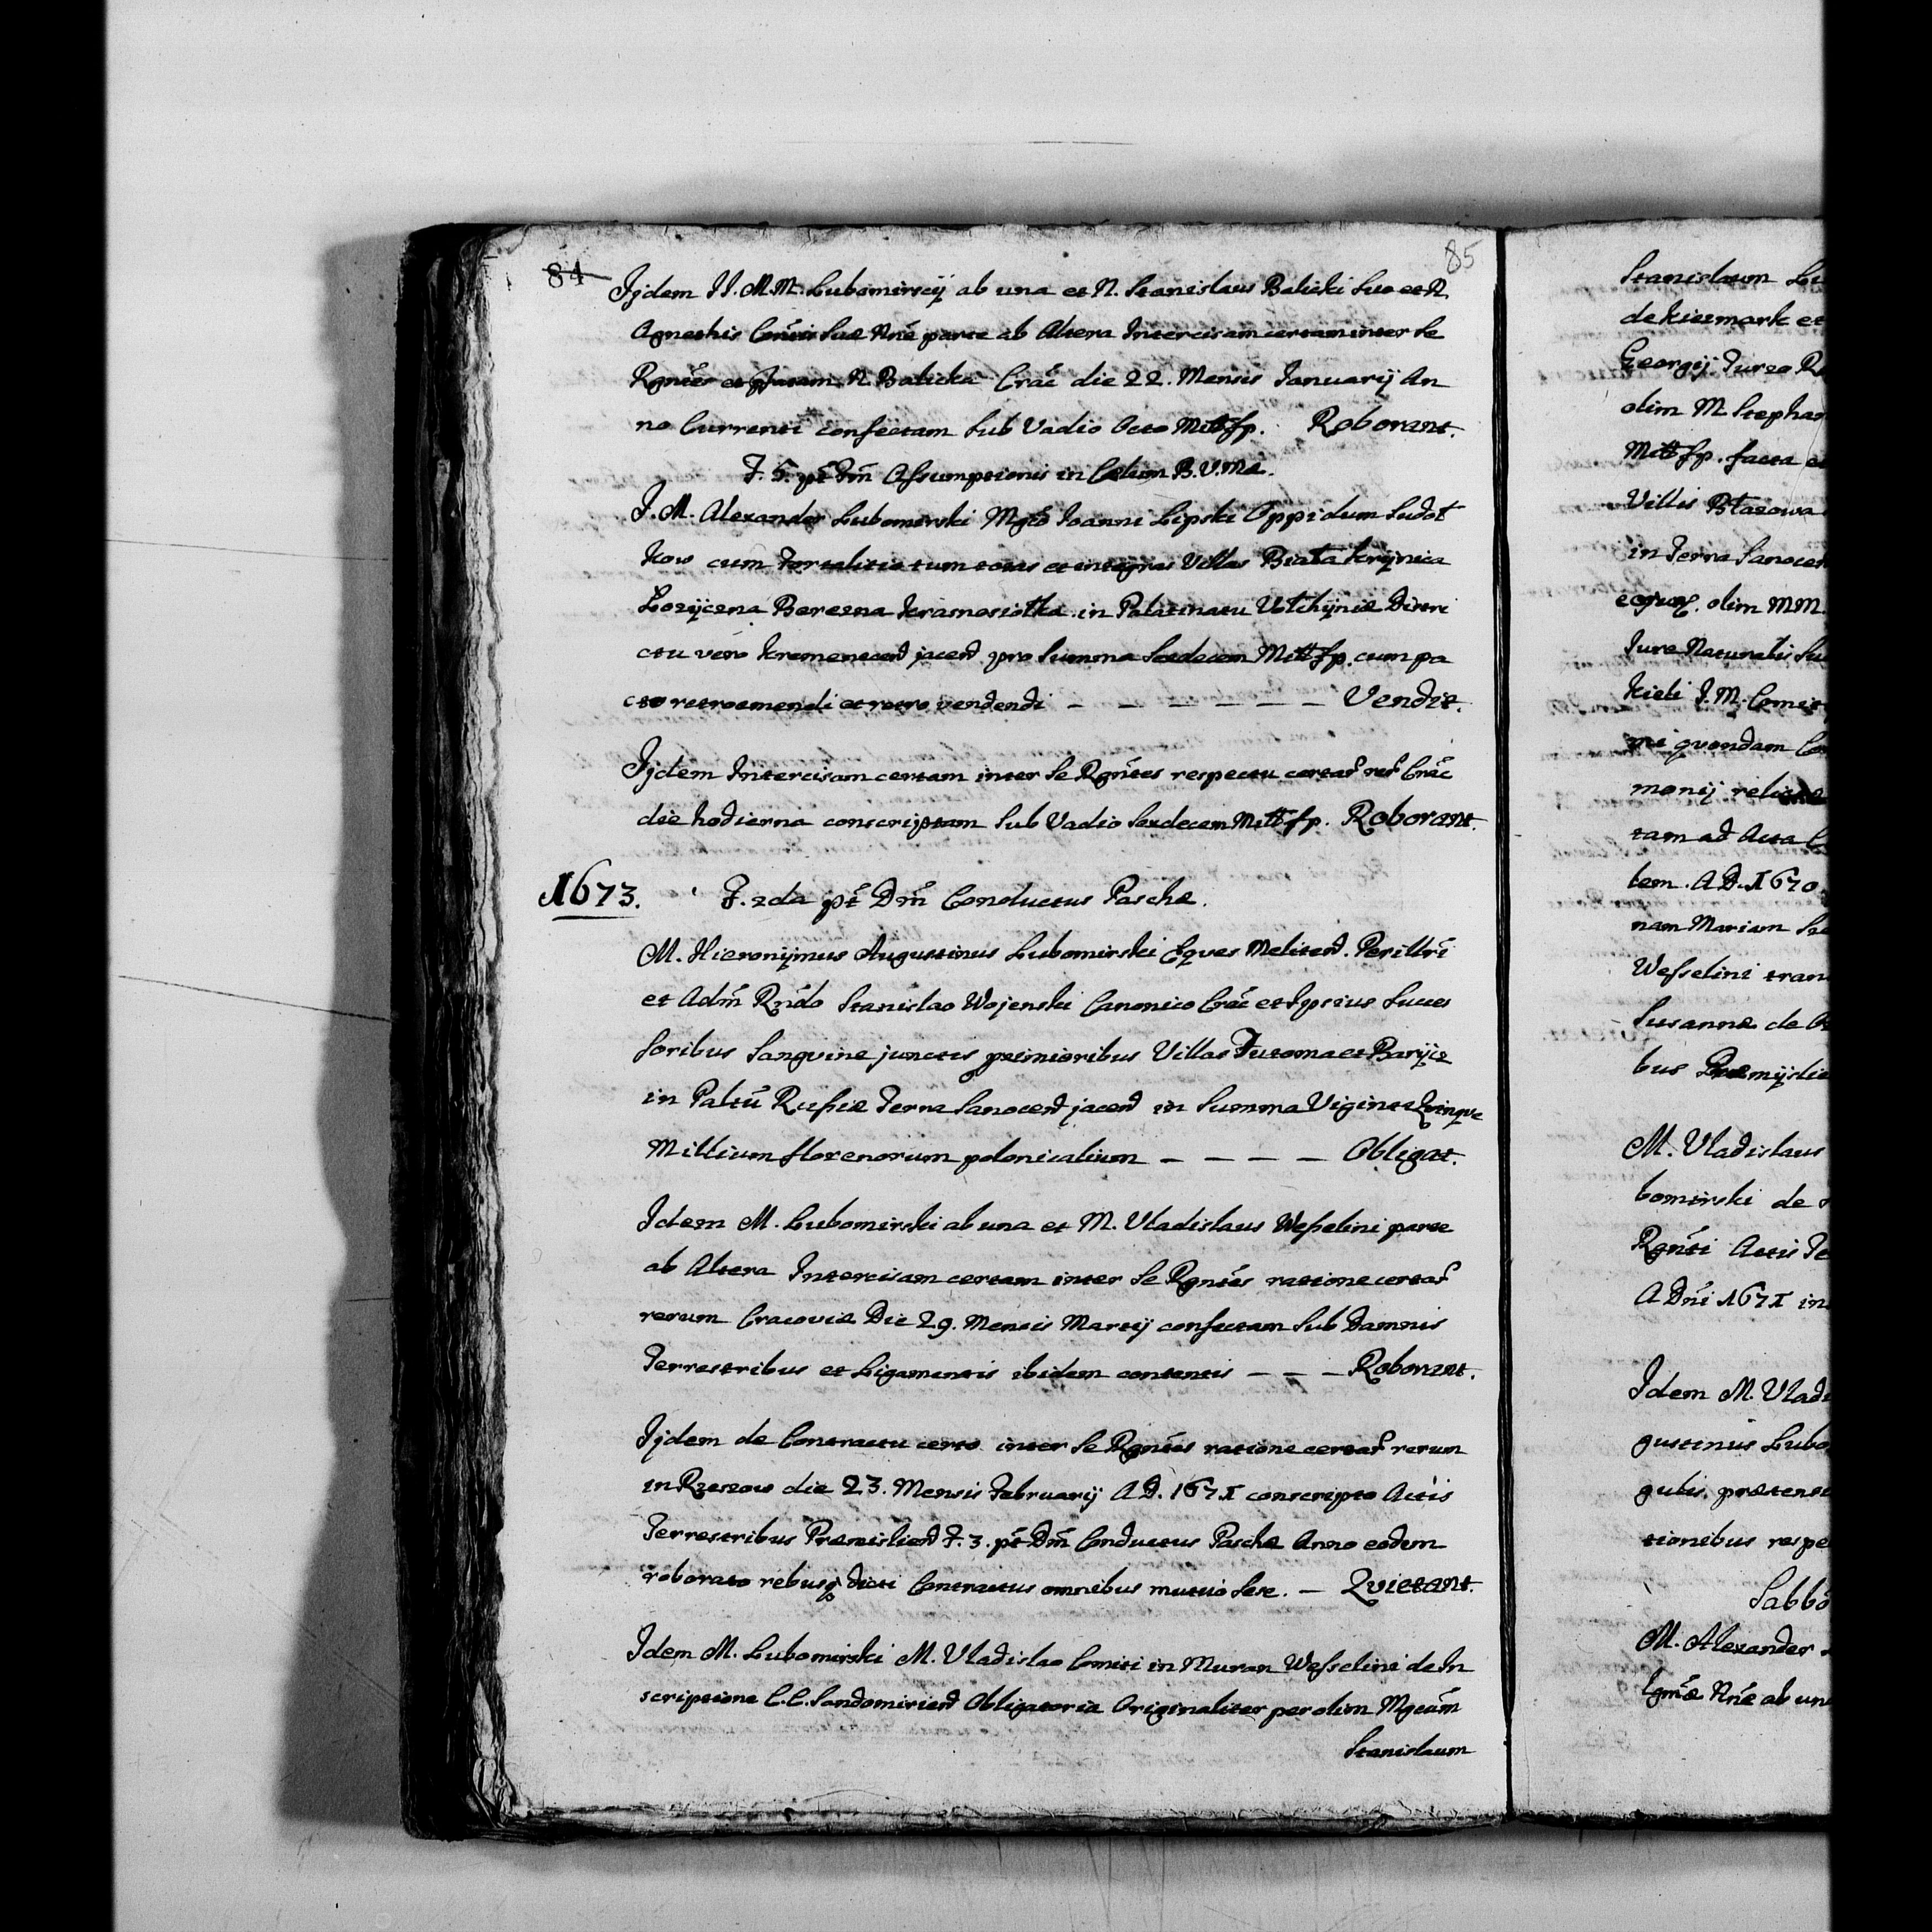 84 85
Ijdem II. M.M. Lubomirscij ab una et N. Stanislaus Balicki Suo et N.
Agnethis Cöntis Suæ Nnẽ parte ab Altera Intercisam certam inter Se
Rgntes et N. Balicka Crac̃ die 22. Mensis Januarij An
no Currenti confectam Sub Vadio Octo Mill fp. Roborant.
F. 5. pt̃ Fm̃ Assumptionis in Cælum B.V.Mæ.
I. M. Alexander Lubomirski Mgc̃o Ioanni Lipski Oppidum Sudoł
kow cum Fortalitio tum totas et integras Villas Biała Krynica
Lozyczna Berezna Krasnosiołka in Palatinatu Volhÿniæ Distri
ctu vero Kremenecen̄ jacen̄ pro Summa Sexdecem Mill fp. cum pa
cto retroemendi et retro vendendi — — — — — — Vendit.
Ijdem Intercisam certam inter Se Rgntes respectu certar̃ rer̃ Crac̃
die hodierna conscriptam Sub Vadio Sexdecem Mill fp. Roborant.
1673. F. 2da pt̃ Dm̃ Conductus Paschæ.
M. Hieronÿmus Augustinus Lubomirski Eques Meliten̄. Perillri
et Adm̃ Rndo Stanislao Wojenski Canonico Crac̃ et Ipsius Succes
soribus Sanguine junctis proximioribus Villas Futoma et Baryÿcz
in Paltũ Russiæ Terra Sanocen̄ jacen̄ in Summa Viginti Qvinqve
Millium florenorum polonicalium — — — — Obligat.
Idem M. Lubomirski ab una et M. Vladislaus Wesselini parte
ab Altera Intercisam certam inter Se Rgntes ratione certar̃
rerum Cracoviæ Die 29. Mensis Martij confectam Sub Damnis
Terrestribus et Ligamentis ibidem contentis — — — Roborant.
Ijdem de Contractu certo inter Se Rgntes ratione certar̃ rerum
in Rzeszow die 23. Mensis Februarij A D. 1671 conscripto Actis
Terrestribus Præmislien̄ F. 3. pt̃ Dm̃ Conductus Paschæ Anno eodem
roborato rebusq dicti Contractus omnibus mutuo Sese. — Qvietant.
Idem M. Lubomirski M. Vladislao Comiti in Muran Wesselini de In
scriptione C.C. Sandomirien̄ Obligatoria Originaliter per olim Mgcum̃
Stanislaum
Stanislaum Lu
de Kiesmark et
Georgij Turzo R
olim M Stephan
Mill fp. facta e
Villis Błazowa
in Terra Sanocen
olim MM.
Iure Naturali Su
I.M. Comit
qvondam Co
monij
tam ad Acta C
lem. A D. 1670.
nam Mariam
Wesselini tran
Susannæ de
bus Præmyslie
M. Vladislaus
bomirski de
Rgnti Actis Te
A Dni 1671 in
Idem M. Vladi
gustinus Lubo
gulis prætens
tionibus respe
Sabbo
M. Alexander
Nnẽ ab una